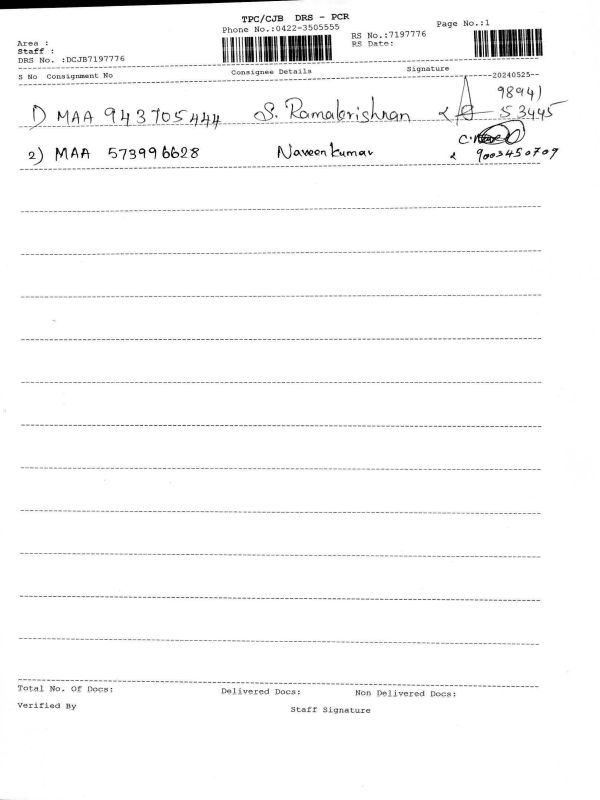 TPC/CJB DRS - PCR
Phone No.:0422-3505555
Page No.:1
RS No.:7197776
RS Date:
Area :
Staff :
DRS No. :DCJB7197776
S No Consignment No Consignee Details Signature
--20240525--
1) MAA 943705444 S. Ramakrishnan 98941
53445
2) MAA 573996628 Naveen kumar
9003450709
Total No. Of Docs: Delivered Docs: Non Delivered Docs:
Verified By Staff Signature